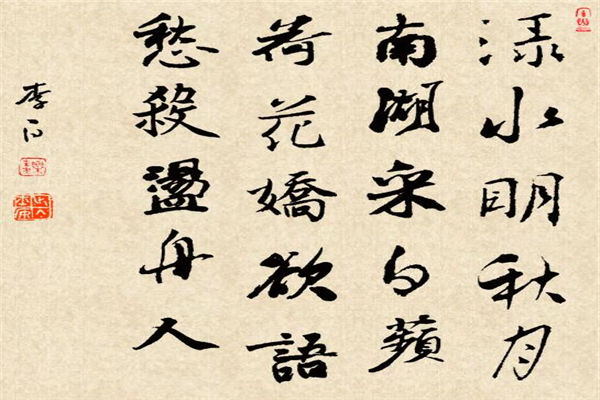 淥水明秋月
南湖采白蘋
荷花嬌欲語
愁殺盪舟人
李